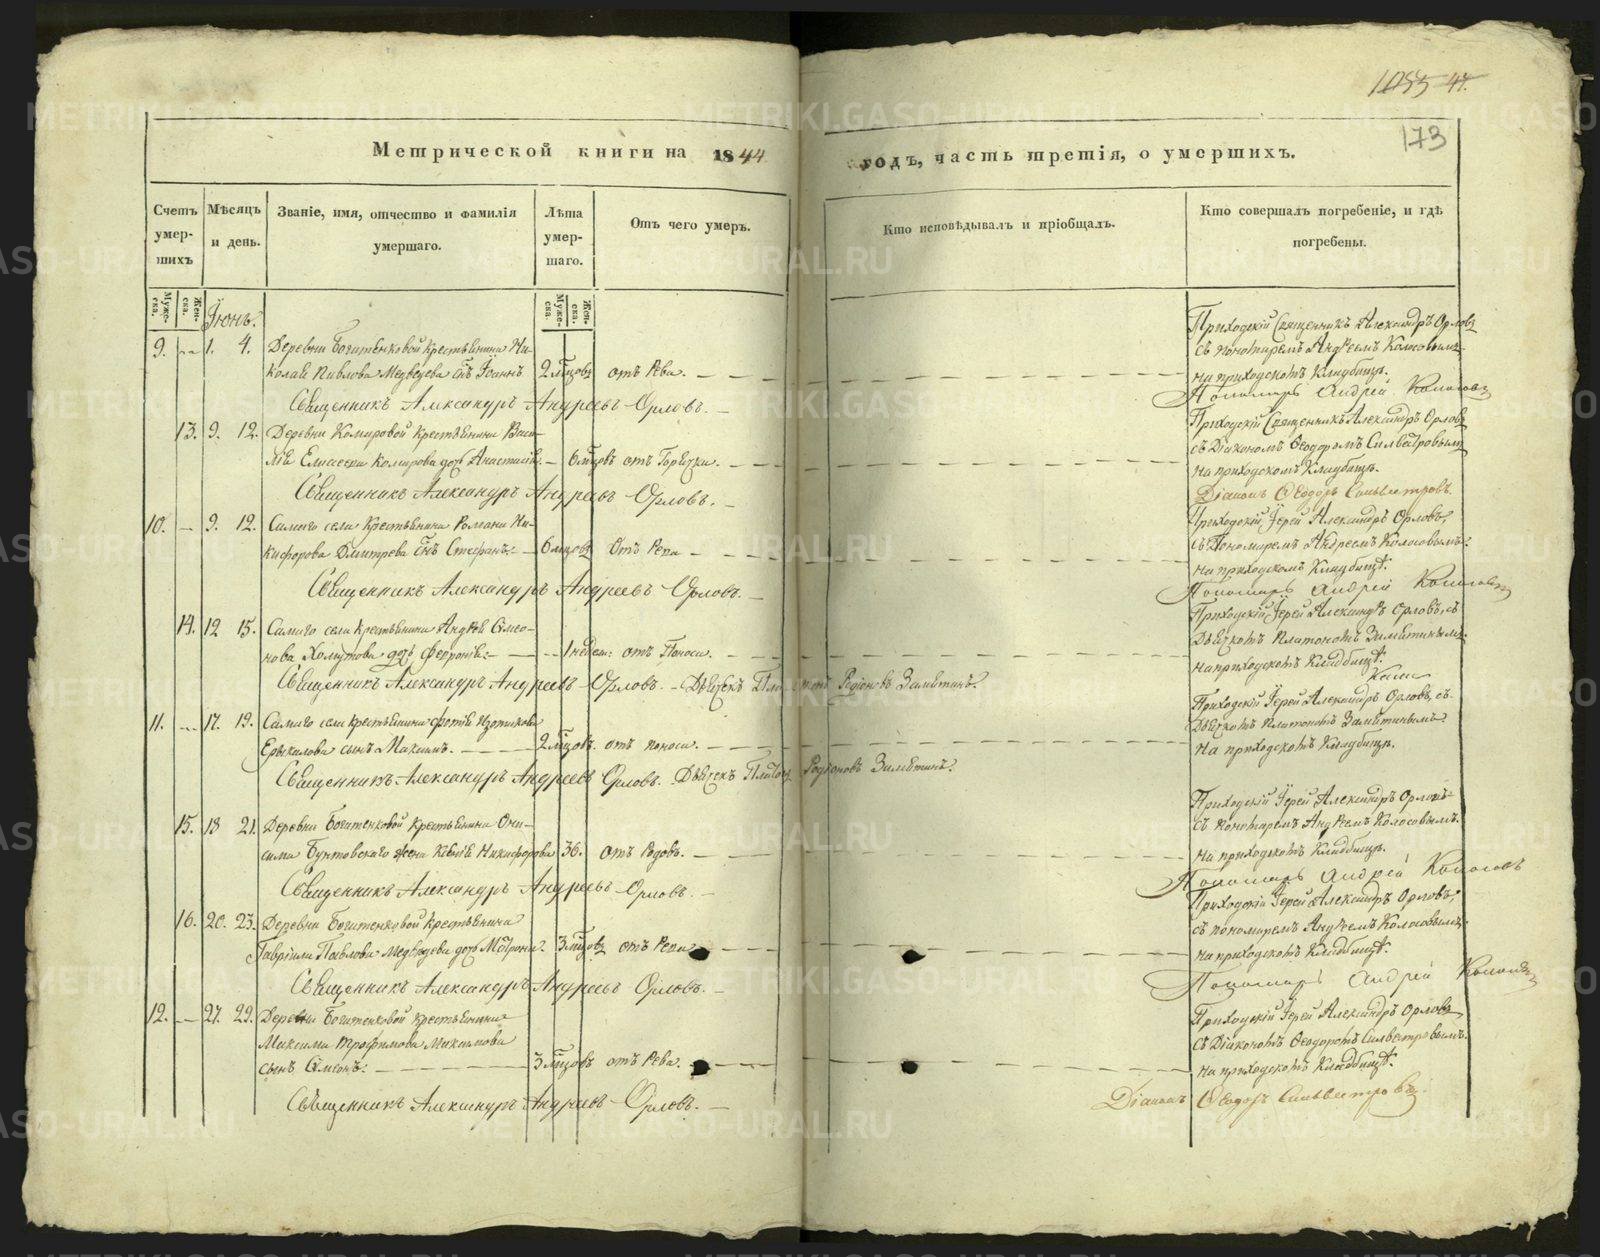 173
Метрической книги на 1844 годъ, часть третія, о умершихъ.
Счетъ умер-шихъ
Муже-ска.
Жен-ска.
Мѣсяцъ и день.
Званіе, имя, отчество и фамилія умершаго.
Лѣта умер-шаго.
Муже-ска.
Жен-ска.
Отъ чего умеръ.
Кто исповѣдывалъ и пріобщалъ.
Кто совершалъ погребеніе, и гдѣ погребены.
Іюнь.
Приходскій Священникъ Александръ Орловъ
9. 1. 4. Деревни Богатенковой крестьянина Ни-
съ пономаремъ Андреемъ Колосовымъ
колая Павлова Медведева снъ Іоаннъ 2 мцовъ отъ Рева.
на приходскомъ Кладбищѣ.
Священникъ Александръ Андреевъ Орловъ.
Пономарь Андрей Колосовъ
Приходскій Священникъ Александръ Орловъ
13. 9. 12. Деревни Комаровой крестьянина Васи-
съ Діакономъ Ѳеодоромъ Сильвестровымъ
лія Елисеева Комарова дочь Анастасія. 6 мцовъ отъ Горячки.
на приходскомъ Кладбищѣ.
Священникъ Александръ Андреевъ Орловъ.
Діаконъ Ѳеодоръ Сильвестровъ.
Приходскій Іерей Александръ Орловъ,
10. 9. 12. Самаго села Крестьянина Романа Ни-
съ Пономаремъ Андреемъ Колосовымъ
кифорова Дмитрева снъ Стефанъ. 6 мцовъ Отъ Рева
на приходскомъ Кладбищѣ.
Священникъ Александръ Андреевъ Орловъ.
Пономарь Андрей Колосовъ
Приходскій Іерей Александръ Орловъ, съ
14. 12 15. Самаго села крестьянина Андрея Симео-
Дьячкомъ Платономъ Замятинымъ
нова Хомутова дочь Февронія. 1 недел: отъ Поноса.
на приходскомъ Кладбищѣ.
Священникъ Александръ Андреевъ Орловъ. Дьячекъ Платонъ Родіоновъ Замятинъ.
Приходскій Іерей Александръ Орловъ, съ
11. 17. 19. Самаго села крестьянина Фотія
Дьячкомъ Платономъ Замятинымъ
сынъ Максимъ. 2 мцовъ. отъ поноса.
на приходскомъ Кладбищѣ.
Священникъ Александръ Андреевъ Орловъ. Дьячекъ Платонъ Родіоновъ Замятинъ.
Приходскій Іерей Александръ Орловъ
15. 18 21. Деревни Богатенковой крестьянина Они-
съ пономаремъ Андреемъ Колосовымъ.
сима Бунтовскаго жена Ксенія Никифорова 36. отъ Родовъ.
на приходскомъ Кладбищѣ.
Священникъ Александръ Андреевъ Орловъ.
Пономарь Андрей Колосовъ
Приходскій Іерей Александръ Орловъ,
16. 20. 23. Деревни Богатенковой крестьянина
съ пономаремъ Андреемъ Колосовымъ
Гавріила Павлова Медведева дочь Матрона. 3 мцовъ отъ Рева
на приходскомъ Кладбищѣ.
Священникъ Александръ Андреевъ Орловъ.
Пономарь Андрей Колосовъ
Приходскій Іерей Александръ Орловъ
12. 27. 29. Деревни Богатенковой крестьянина
съ Діакономъ Ѳеодоромъ Сильвестровымъ.
Максима Трофимова
сынъ Симеонъ. 3 мцовъ отъ Рева.
на приходскомъ Кладбищѣ.
Священникъ Александръ Андреевъ Орловъ.
Діаконъ Ѳеодоръ Сильвестровъ.
METRIKI.GASO-URAL.RU